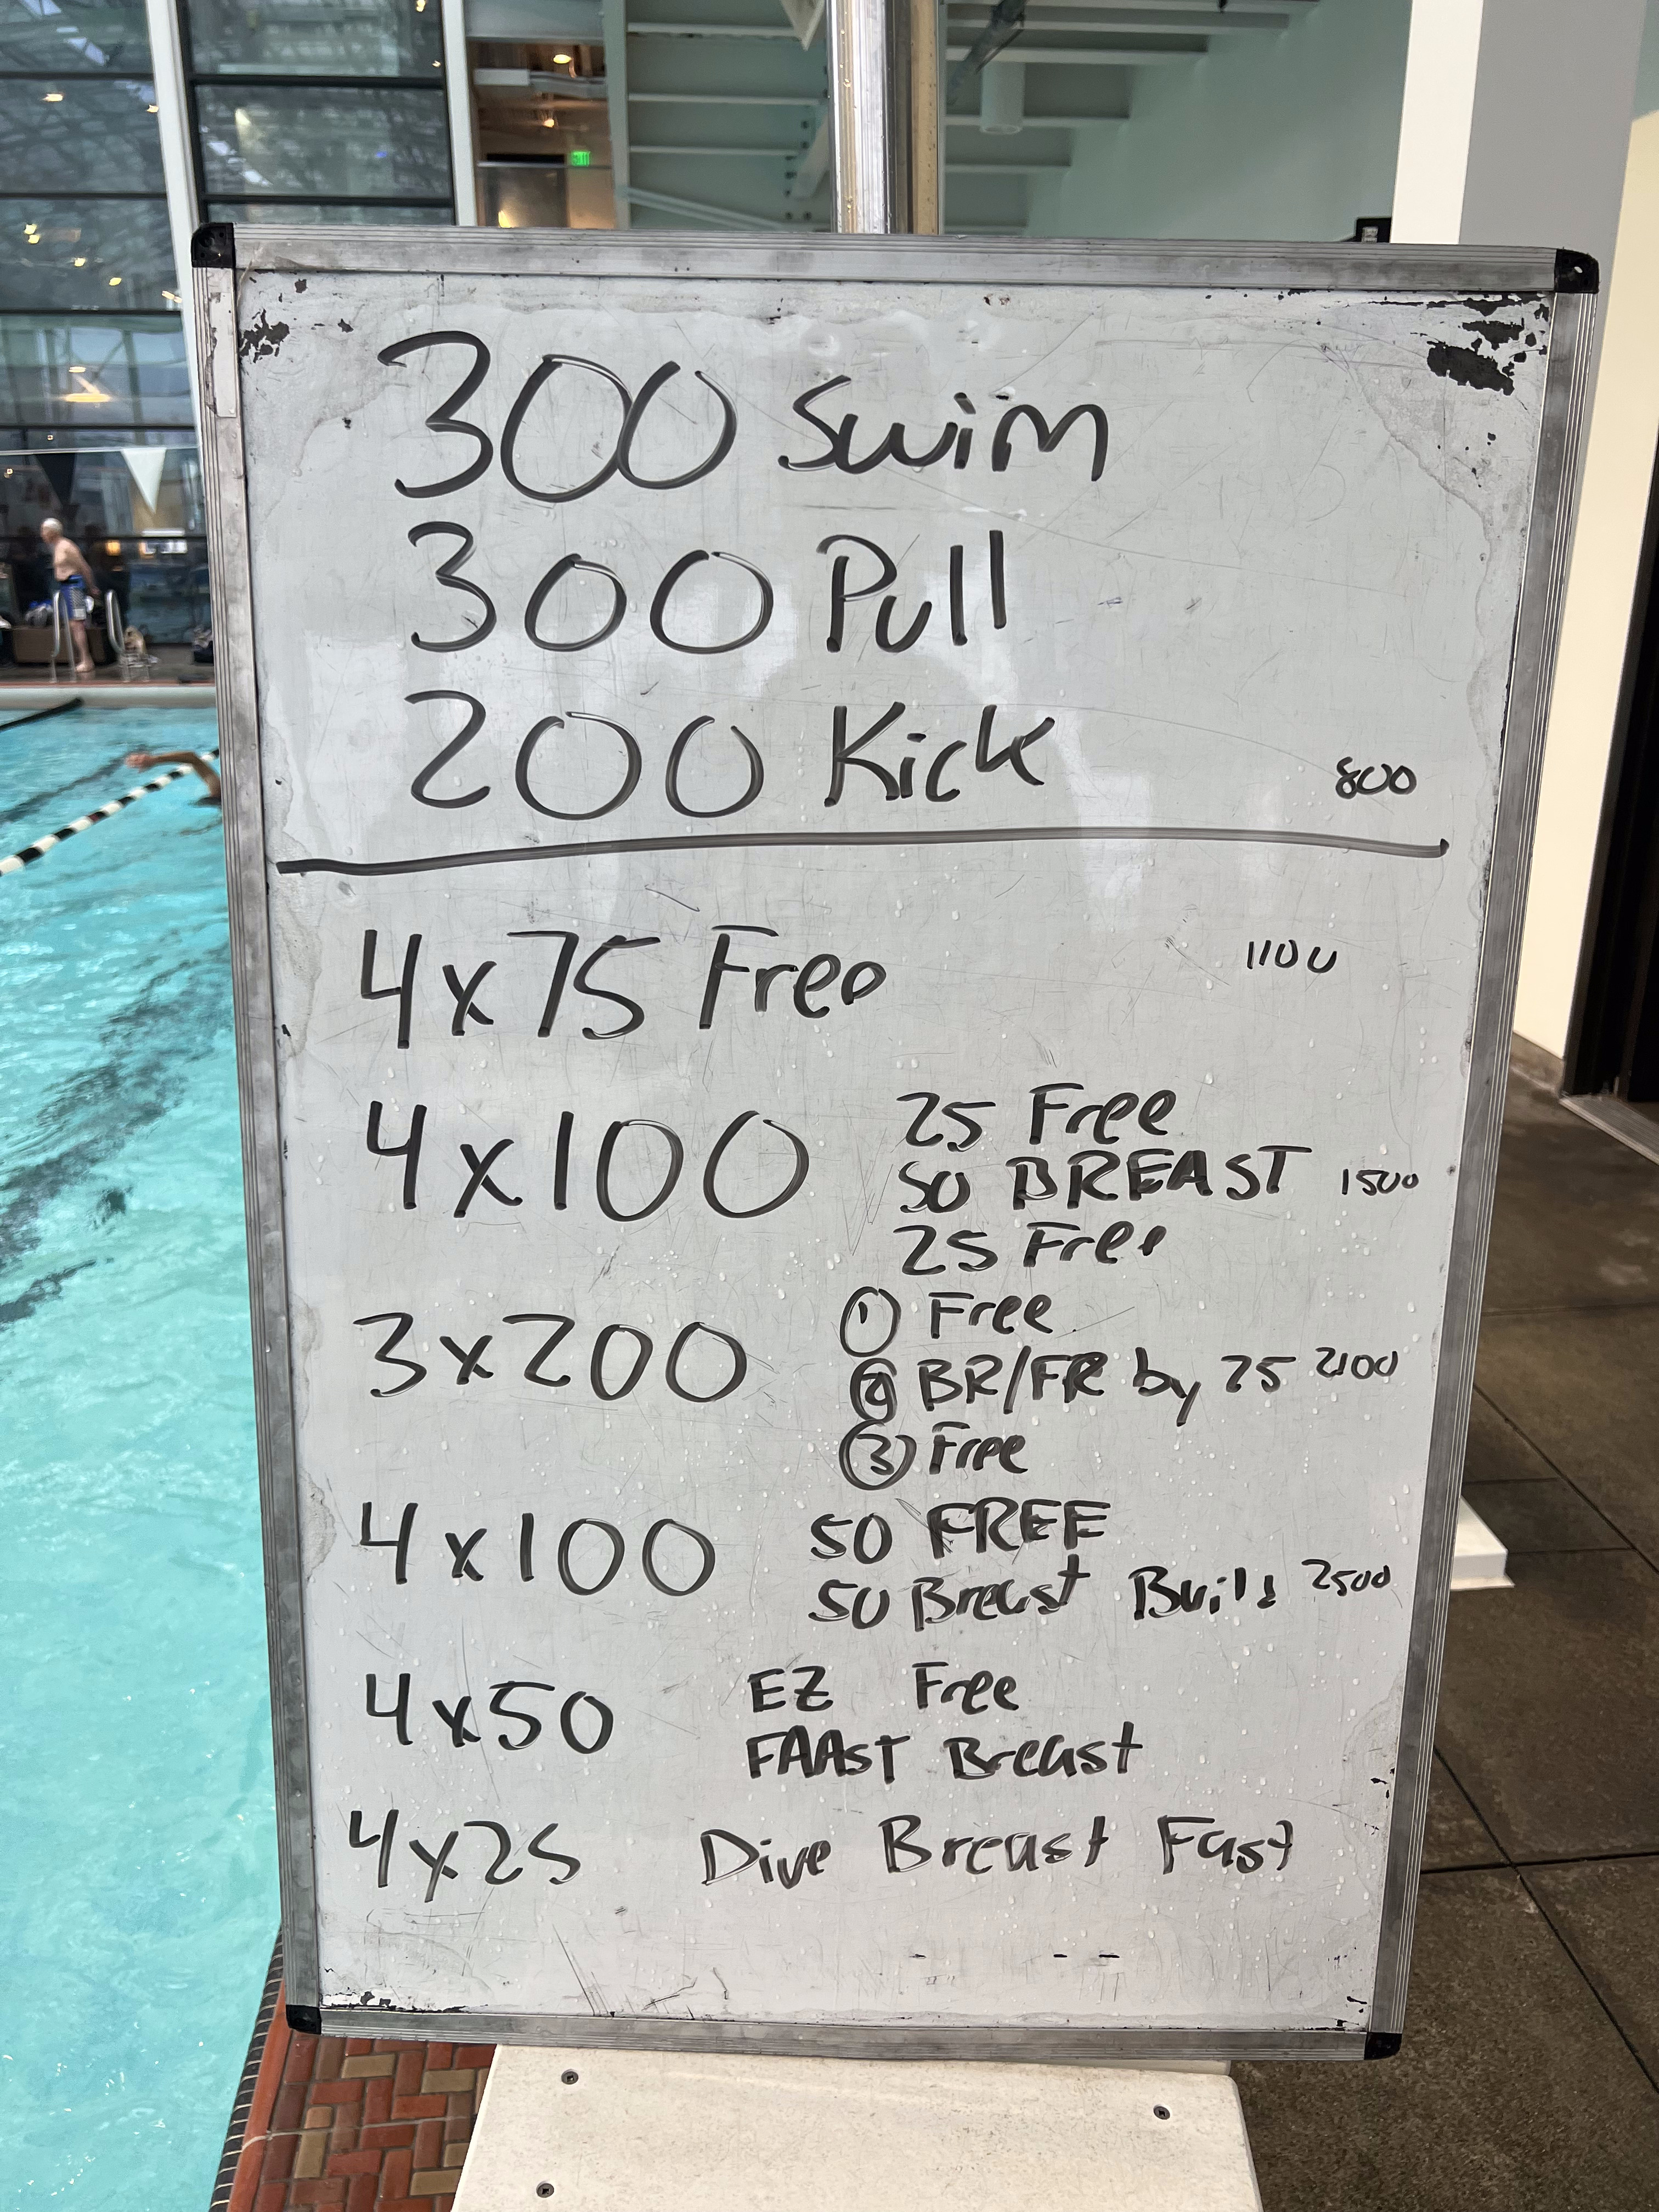 300 Swim
300 Pull
200 Kick 800
4x75 Free 1100
4x100 25 Free
50 BREAST 1500
25 Free
3x200 ① Free
② BR/FR by 25 2100
③ Free
4x100 50 FREE
50 Breast Build 2500
4x50 EZ Free
FAAST Breast
4x25 Dive Breast Fast